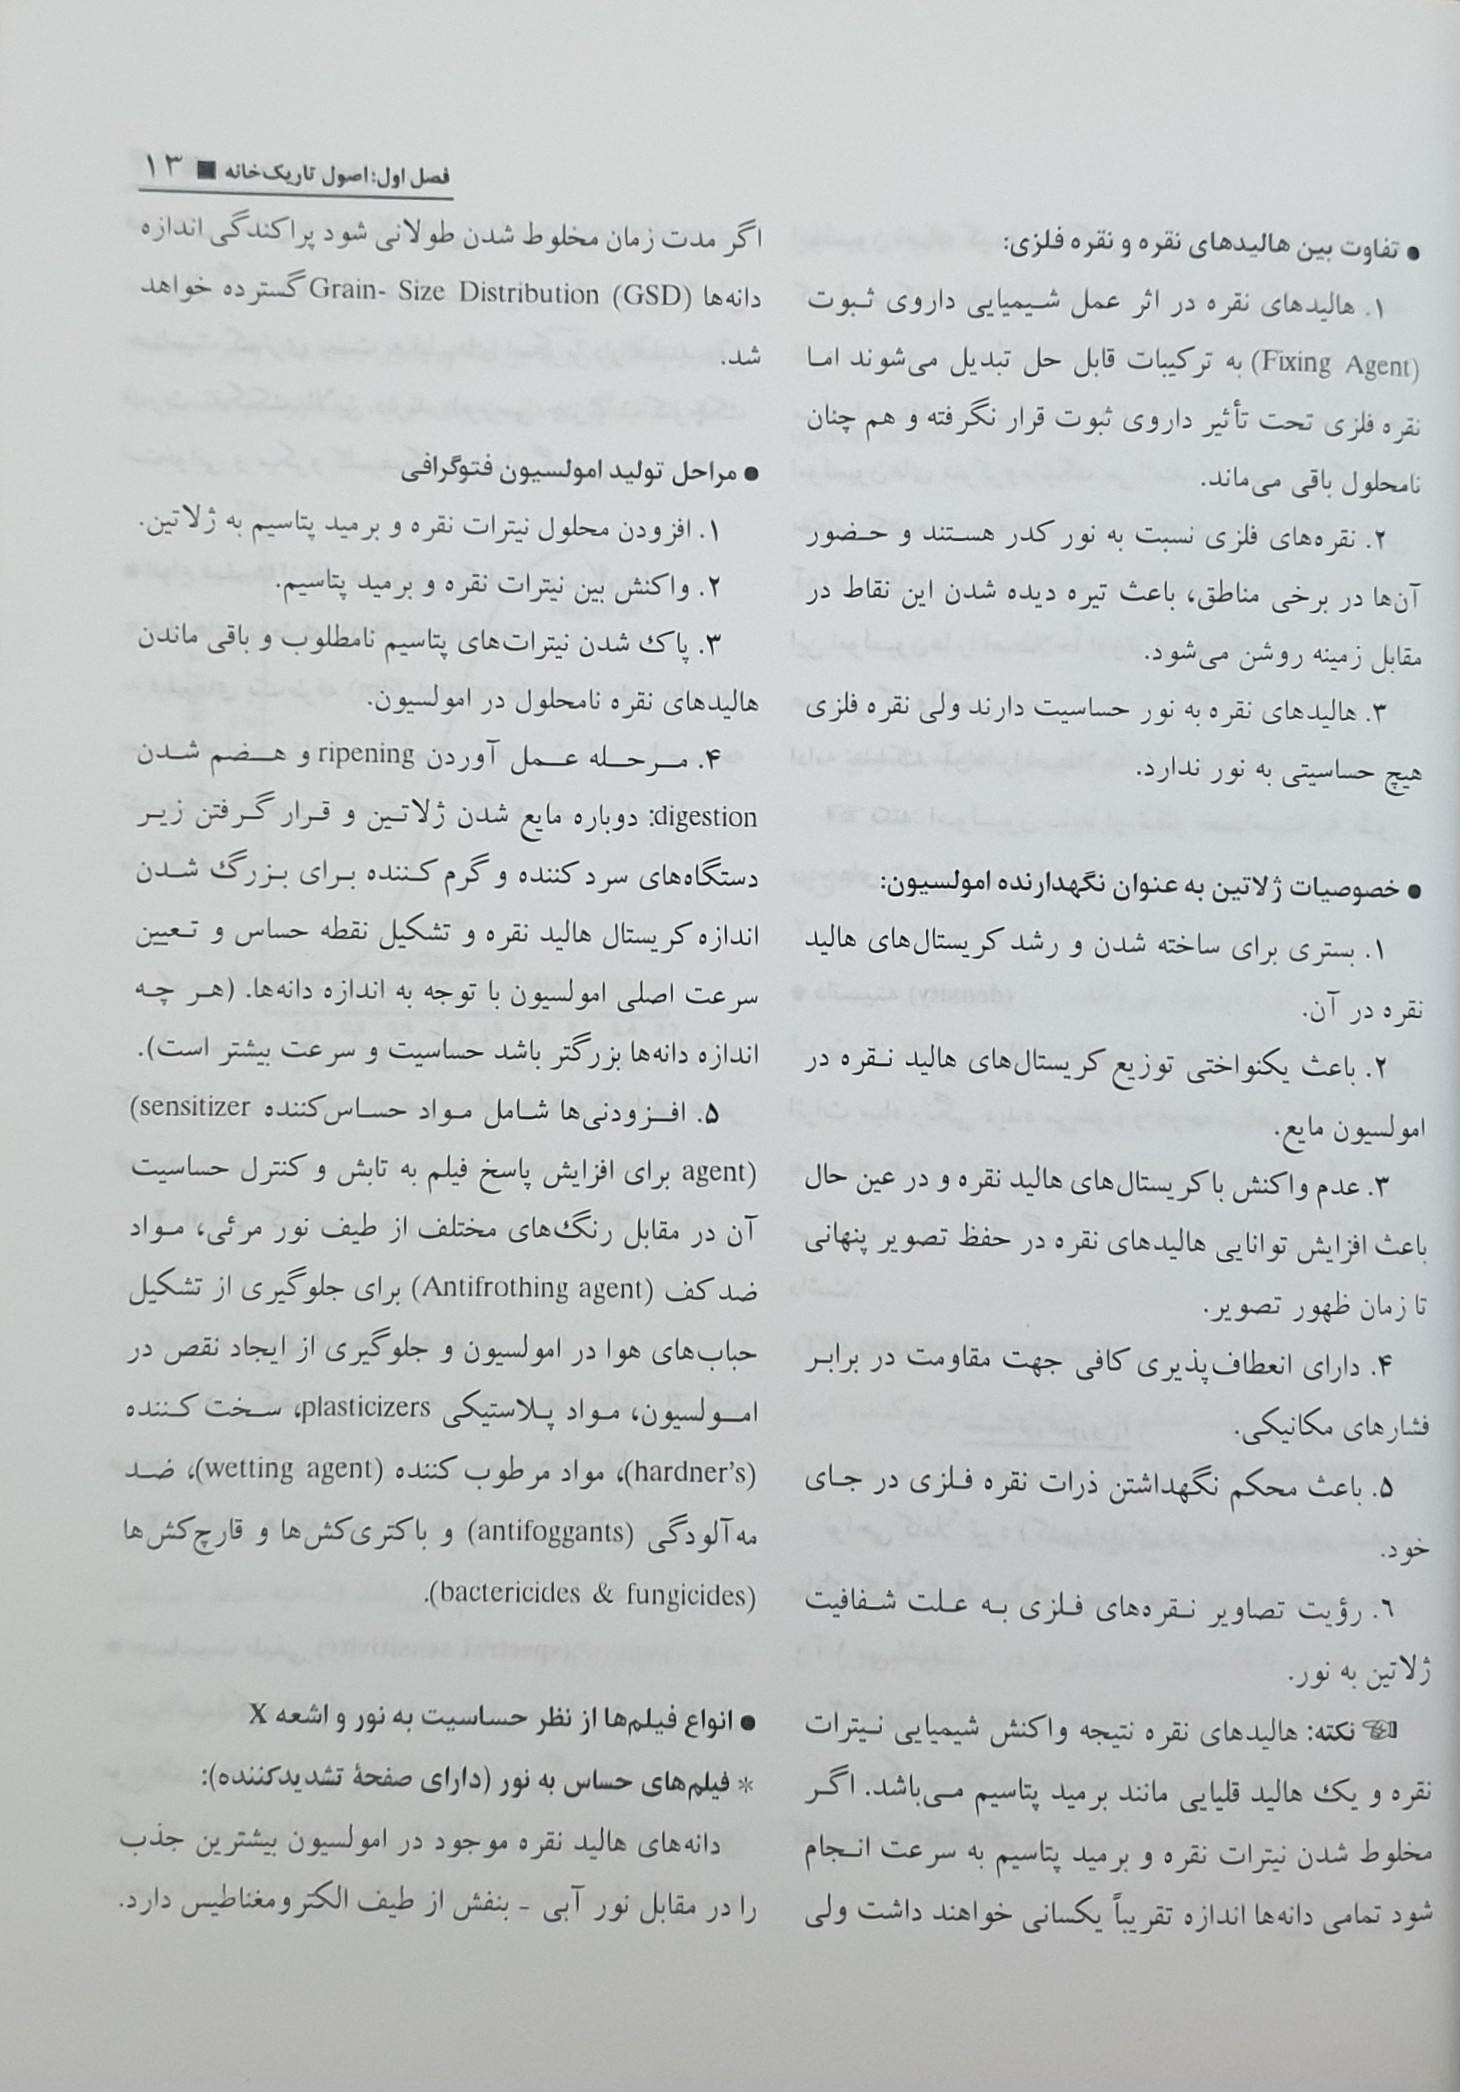 فصل اول: اصول تاریک‌خانه ■ ۱۳
● تفاوت بین هالیدهای نقره و نقره فلزی:
۱. هالیدهای نقره در اثر عمل شیمیایی داروی ثبوت
(Fixing Agent) به ترکیبات قابل حل تبدیل می‌شوند اما
نقره فلزی تحت تأثیر داروی ثبوت قرار نگرفته و هم چنان
نامحلول باقی می‌ماند.
۲. نقره‌های فلزی نسبت به نور کدر هستند و حضور
آن‌ها در برخی مناطق، باعث تیره دیده شدن این نقاط در
مقابل زمینه روشن می‌شود.
۳. هالیدهای نقره به نور حساسیت دارند ولی نقره فلزی
هیچ حساسیتی به نور ندارد.
● خصوصیات ژلاتین به عنوان نگهدارنده امولسیون:
۱. بستری برای ساخته شدن و رشد کریستال‌های هالید
نقره در آن.
۲. باعث یکنواختی توزیع کریستال‌های هالید نقره در
امولسیون مایع.
۳. عدم واکنش با کریستال‌های هالید نقره و در عین حال
باعث افزایش توانایی هالیدهای نقره در حفظ تصویر پنهانی
تا زمان ظهور تصویر.
۴. دارای انعطاف‌پذیری کافی جهت مقاومت در برابر
فشارهای مکانیکی.
۵. باعث محکم نگهداشتن ذرات نقره فلزی در جای
خود.
۶. رؤیت تصاویر نقره‌های فلزی به علت شفافیت
ژلاتین به نور.
☜ نکته: هالیدهای نقره نتیجه واکنش شیمیایی نیترات
نقره و یک هالید قلیایی مانند برمید پتاسیم می‌باشد. اگر
مخلوط شدن نیترات نقره و برمید پتاسیم به سرعت انجام
شود تمامی دانه‌ها اندازه تقریباً یکسانی خواهند داشت ولی
اگر مدت زمان مخلوط شدن طولانی شود پراکندگی اندازه
دانه‌ها Grain- Size Distribution (GSD) گسترده خواهد
شد.
● مراحل تولید امولسیون فتوگرافی
۱. افزودن محلول نیترات نقره و برمید پتاسیم به ژلاتین.
۲. واکنش بین نیترات نقره و برمید پتاسیم.
۳. پاک شدن نیترات‌های پتاسیم نامطلوب و باقی ماندن
هالیدهای نقره نامحلول در امولسیون.
۴. مرحله عمل آوردن ripening و هضم شدن
digestion: دوباره مایع شدن ژلاتین و قرار گرفتن زیر
دستگاه‌های سرد کننده و گرم کننده برای بزرگ شدن
اندازه کریستال هالید نقره و تشکیل نقطه حساس و تعیین
سرعت اصلی امولسیون با توجه به اندازه دانه‌ها. (هر چه
اندازه دانه‌ها بزرگتر باشد حساسیت و سرعت بیشتر است).
۵. افزودنی‌ها شامل مواد حساس‌کننده (sensitizer
agent) برای افزایش پاسخ فیلم به تابش و کنترل حساسیت
آن در مقابل رنگ‌های مختلف از طیف نور مرئی، مواد
ضد کف (Antifrothing agent) برای جلوگیری از تشکیل
حباب‌های هوا در امولسیون و جلوگیری از ایجاد نقص در
امولسیون، مواد پلاستیکی plasticizers، سخت کننده
(hardner's)، مواد مرطوب کننده (wetting agent)، ضد
مه‌آلودگی (antifoggants) و باکتری‌کش‌ها و قارچ‌کش‌ها
(bactericides & fungicides).
● انواع فیلم‌ها از نظر حساسیت به نور و اشعه X
* فیلم‌های حساس به نور (دارای صفحهٔ تشدیدکننده):
دانه‌های هالید نقره موجود در امولسیون بیشترین جذب
را در مقابل نور آبی - بنفش از طیف الکترومغناطیس دارد.